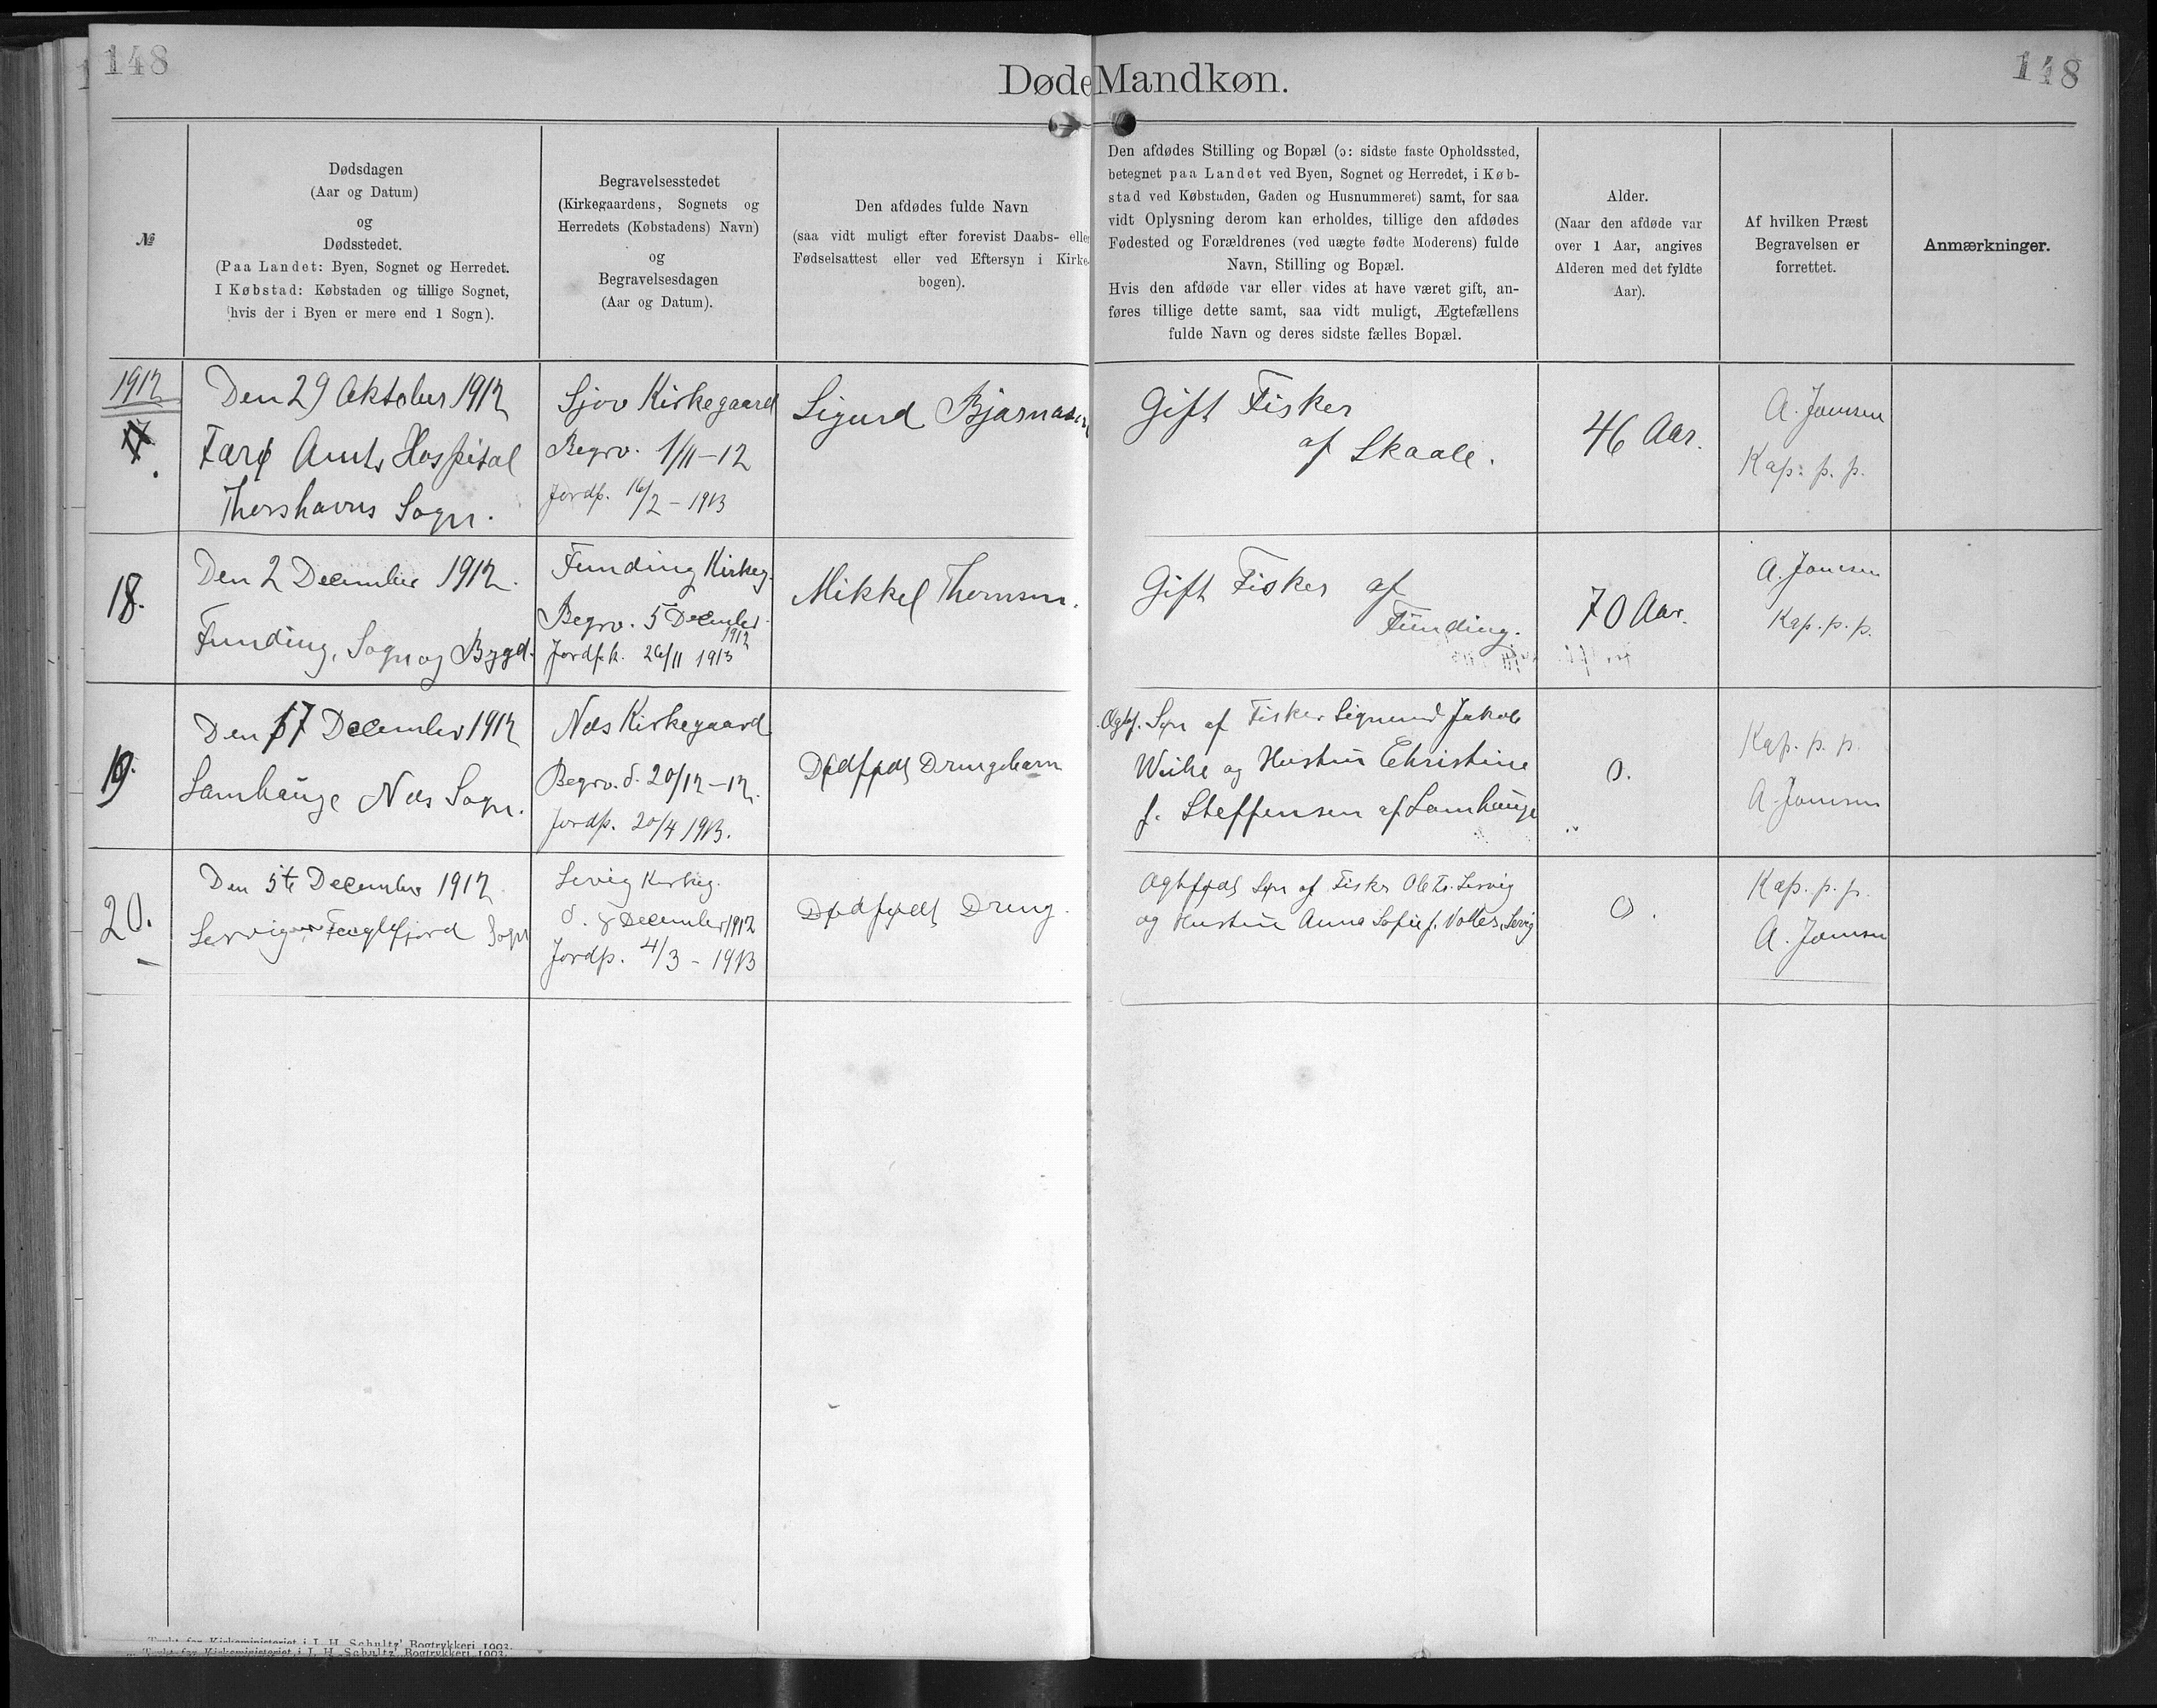 148
148
Døde Mandkøn.
№
Dødsdagen
(Aar og Datum)
og
Dødsstedet.
(Paa Landet: Byen, Sognet og Herredet.
I Købstad: Købstaden og tillige Sognet,
hvis der i Byen er mere end 1 Sogn).
Begravelsesstedet
(Kirkegaardens, Sognets og
Herredets (Købstadens) Navn)
og
Begravelsesdagen
(Aar og Datum).
Den afdødes fulde Navn
(saa vidt muligt efter forevist Daabs- eller
Fødselsattest eller ved Eftersyn i Kirke-
bogen).
Den afdødes Stilling og Bopæl (ɔ: sidste faste Opholdssted,
betegnet paa Landet ved Byen, Sognet og Herredet, i Køb-
stad ved Købstaden, Gaden og Husnummeret) samt, for saa
vidt Oplysning derom kan erholdes, tillige den afdødes
Fødested og Forældrenes (ved uægte fødte Moderens) fulde
Navn, Stilling og Bopæl.
Hvis den afdøde var eller vides at have været gift, an-
føres tillige dette samt, saa vidt muligt, Ægtefællens
fulde Navn og deres sidste fælles Bopæl.
Alder.
(Naar den afdøde var
over 1 Aar, angives
Alderen med det fyldte
Aar).
Af hvilken Præst
Begravelsen er
forrettet.
Anmærkninger.
1912
17.
Den 29 Oktober 1912
Færø Amts Hospital
Thorshavns Sogn.
Sjov Kirkegaard
Begrv. 1/11-12
Jordp. 16/2 - 1913
Sigurd Bjarnasen
Gift Fisker
af Skaale.
46 Aar.
A. Joensen
Kap. p. p.
18.
Den 2 December 1912.
Funding, Sogn og Bygd.
Funding Kirkeg.
Begrv. 5 December
1912
Jordpk. 26/11 1913
Mikkel Thomsen.
Gift Fisker af
Funding.
70 Aar.
A. Joensen
Kap. p. p.
19.
Den 17 December 1912
Lamhauge Næs Sogn.
Næs Kirkegaard
Begrv. d. 20/12-12.
Jordp. 20/4 1913.
Dødfødt Drengebarn
Ægtf. Søn af Fisker Sigmund Jakob
Weihe og Hustru Christine
f. Steffensen af Lamhauge
0.
Kap. p. p.
A. Joensen
20.
Den 5te December 1912
Lervig Fuglefjord Sogn
Lervig Kirkeg.
d. 8 December 1912
Jordp. 4/3 - 1913
Dødfødt Dreng.
Ægtefødt Søn af Fisker Ole Lervig
og Hustru Anna Sofie f. Lervig
0.
Kap. p. p.
A. Joensen
Trykt for Kirkeministeriet i J. H. Schultz' Bogtrykkeri 1903.
Trykt for Kirkeministeriet i J. H. Schultz' Bogtrykkeri 1903.